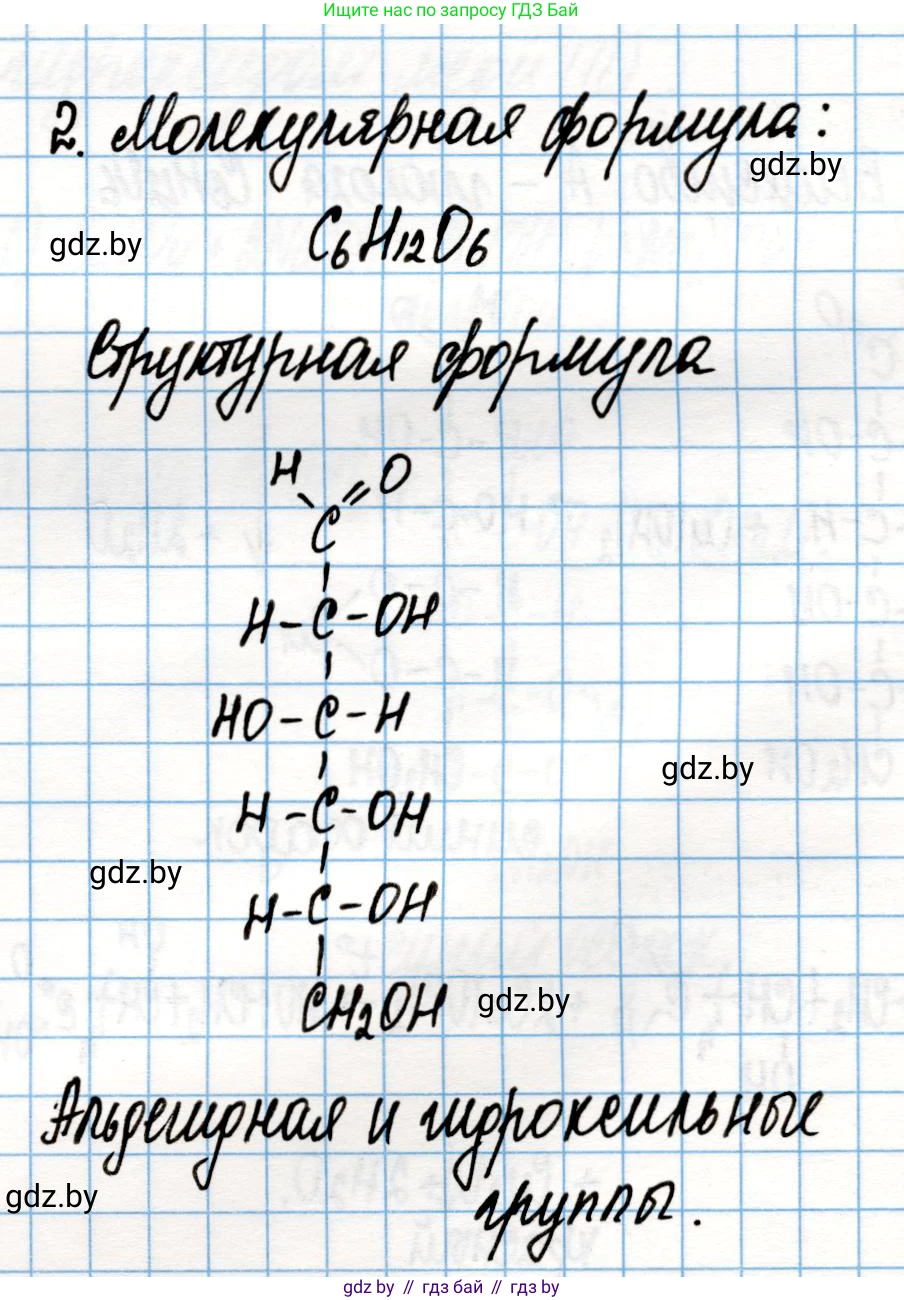 Ищите нас по запросу ГДЗ Бай
2. Молекулярная формула:
gdz.by
gdz.by
C6H12O6
Структурная формула
H O
C
H-C-OH
HO-C-H
gdz.by
H-C-OH
gdz.by
H-C-OH
CH2OH
gdz.by
Альдегидная и гидроксильные
gdz.by
группы.
gdz.by // гдз бай // гдз by